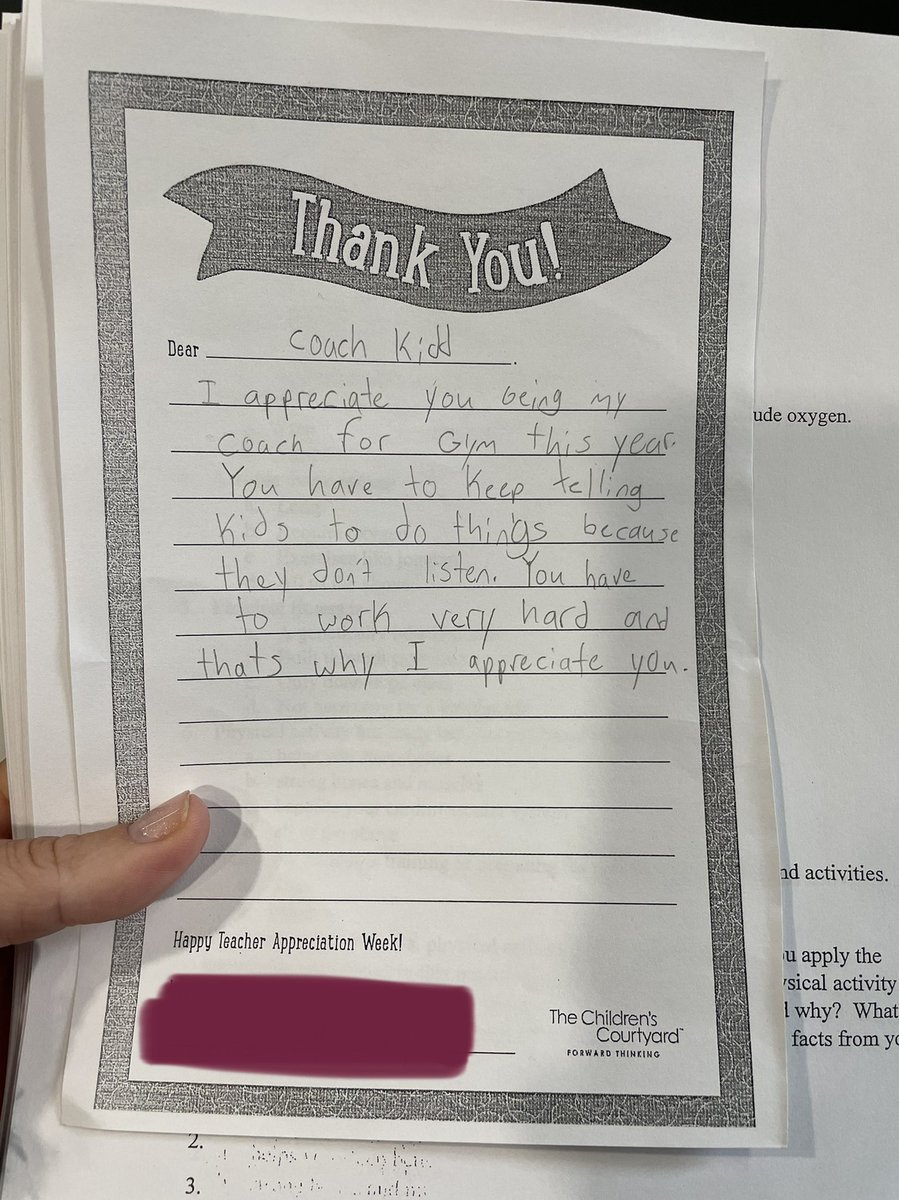 Thank You!
Dear Coach Kidd.
I appreciate you being my
coach for Gym this year.
You have to Keep telling
Kids to do things because
they don't listen. You have
to work very hard and
thats why I appreciate you.
Happy Teacher Appreciation Week!
The Children's
Courtyard™
FORWARD THINKING
ude oxygen.
nd activities.
u apply the
ysical activity
why? What
facts from yo
2.
3.